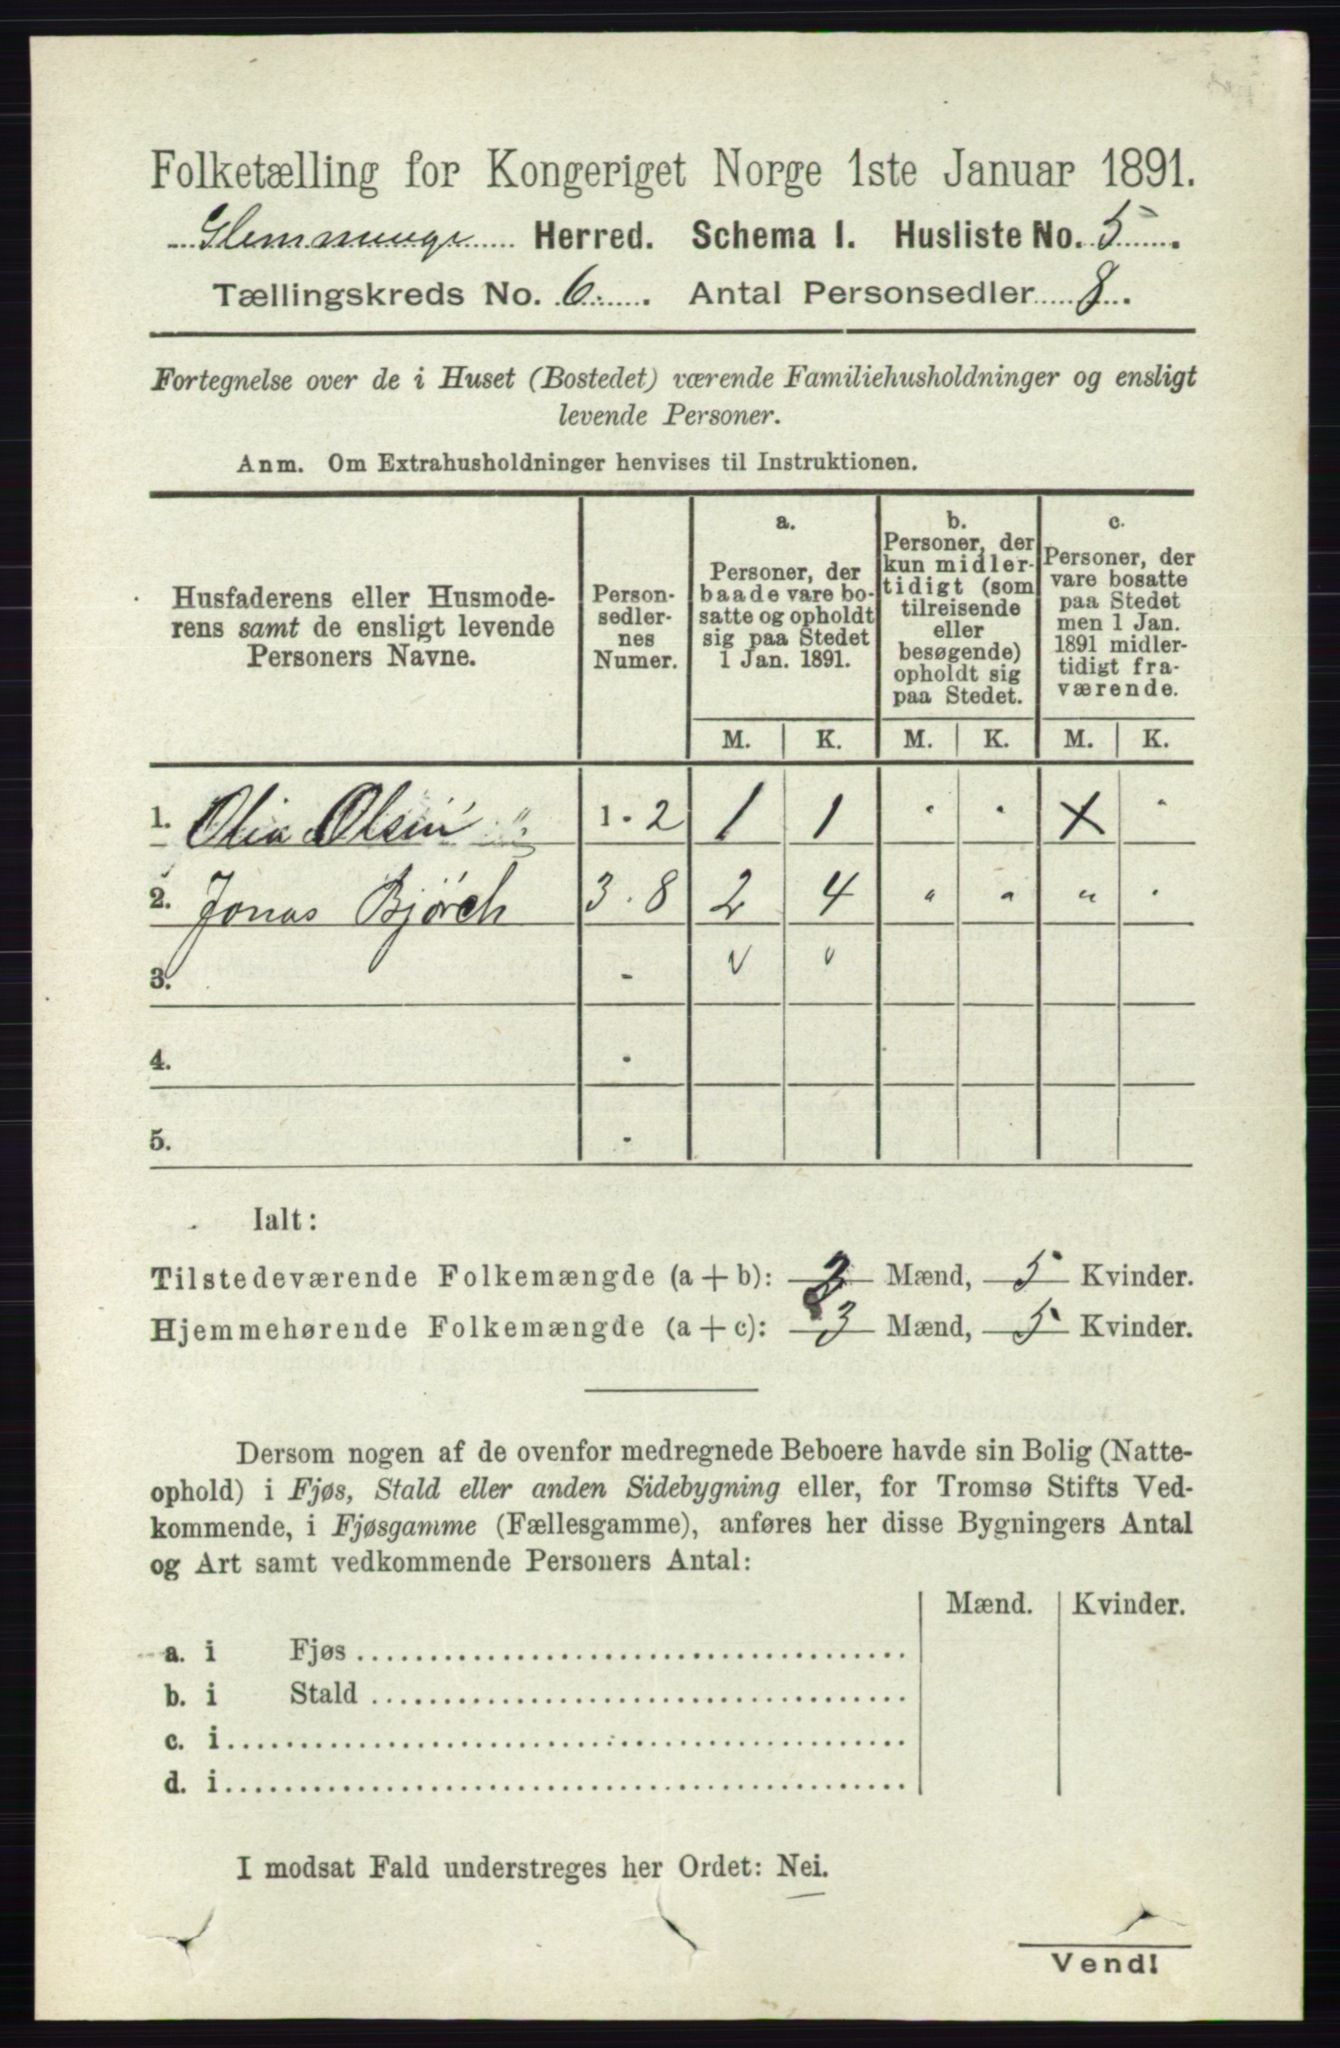 Folketælling for Kongeriget Norge 1ste Januar 1891.
Glemminge Herred. Schema I. Husliste No. 5.
Tællingskreds No. 6. Antal Personsedler 8.
Fortegnelse over de i Huset (Bostedet) værende Familiehusholdninger og ensligt
levende Personer.
Anm. Om Extrahusholdninger henvises til Instruktionen.
Husfaderens eller Husmode-
rens samt de ensligt levende
Personers Navne.
Person-
sedler-
nes
Numer.
a.
Personer, der
baade vare bo-
satte og opholdt
sig paa Stedet
1 Jan. 1891.
b.
Personer, der
kun midler-
tidigt (som
tilreisende
eller
besøgende)
opholdt sig
paa Stedet.
c.
Personer, der
vare bosatte
paa Stedet
men 1 Jan.
1891 midler-
tidigt fra-
værende.
M. K. M. K. M. K.
1. Olia Olsen 1 - 2 1 1 " " X "
2. Jonas Bjørch 3 - 8 2 4 " " " "
3. - v v
4. -
5. -
Ialt:
Tilstedeværende Folkemængde (a + b): Mænd, 5 Kvinder.
Hjemmehørende Folkemængde (a + c): 3 Mænd, 5 Kvinder.
Dersom nogen af de ovenfor medregnede Beboere havde sin Bolig (Natte-
ophold) i Fjøs, Stald eller anden Sidebygning eller, for Tromsø Stifts Ved-
kommende, i Fjøsgamme (Fællesgamme), anføres her disse Bygningers Antal
og Art samt vedkommende Personers Antal:
Mænd. Kvinder.
a. i Fjøs
b. i Stald
c. i
d. i
I modsat Fald understreges her Ordet: Nei.
Vend!